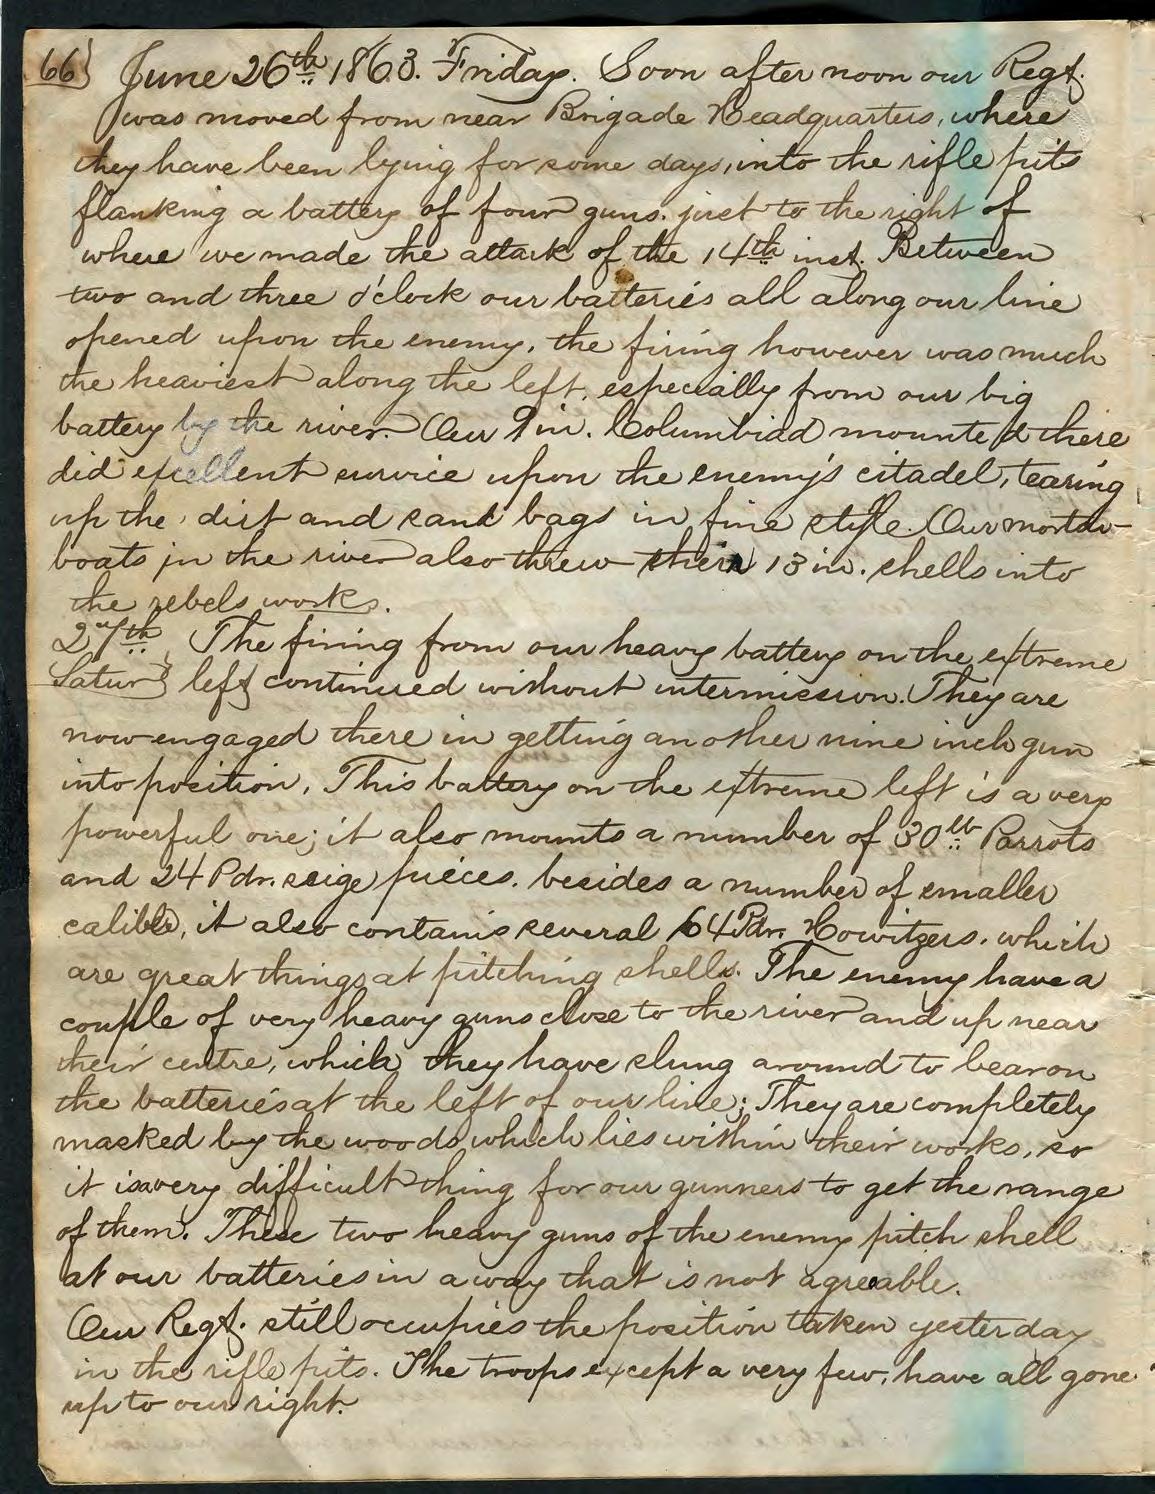 66} June 26th 1863. Friday. Soon after noon our Regt.
was moved from near Brigade Headquarters, where
they have been lying for some days, into the rifle pits
flanking a battery of four guns. just to the right of
where we made the attack of the 14th inst. Between
two and three o'clock our batteries all along our line
opened upon the enemy, the firing however was much
the heaviest along the left, especially from our big
battery by the river. Our 9 in. Columbiad mounted there
did excellent survice upon the enemy's citadel, tearing
up the dirt and sand bags in fine style. Our mortar
boats in the river also threw their 13 in. shells into
the rebels works.
27th The firing from our heavy battery on the extreme
Satur} left continued without intermission. They are
now engaged there in getting another nine inch gun
into position. This battery on the extreme left is a very
powerful one; it also mounts a number of 30lb Parrots
and 24 Pdr. seige pieces. besides a number of smaller
calible, it also contains several 64 Pdr. Howitzers. which
are great things at pitching shells. The enemy have a
couple of very heavy guns close to the river and up near
their centre, which they have slung around to bear on
the batteries at the left of our line; They are completely
masked by the woods which lies within their works, so
it is a very difficult thing for our gunners to get the range
of them. These two heavy guns of the enemy pitch shell
at our batteries in a way that is not agreable.
Our Regt. still occupies the position taken yesterday
in the rifle pits. The troops except a very few, have all gone
up to our right.